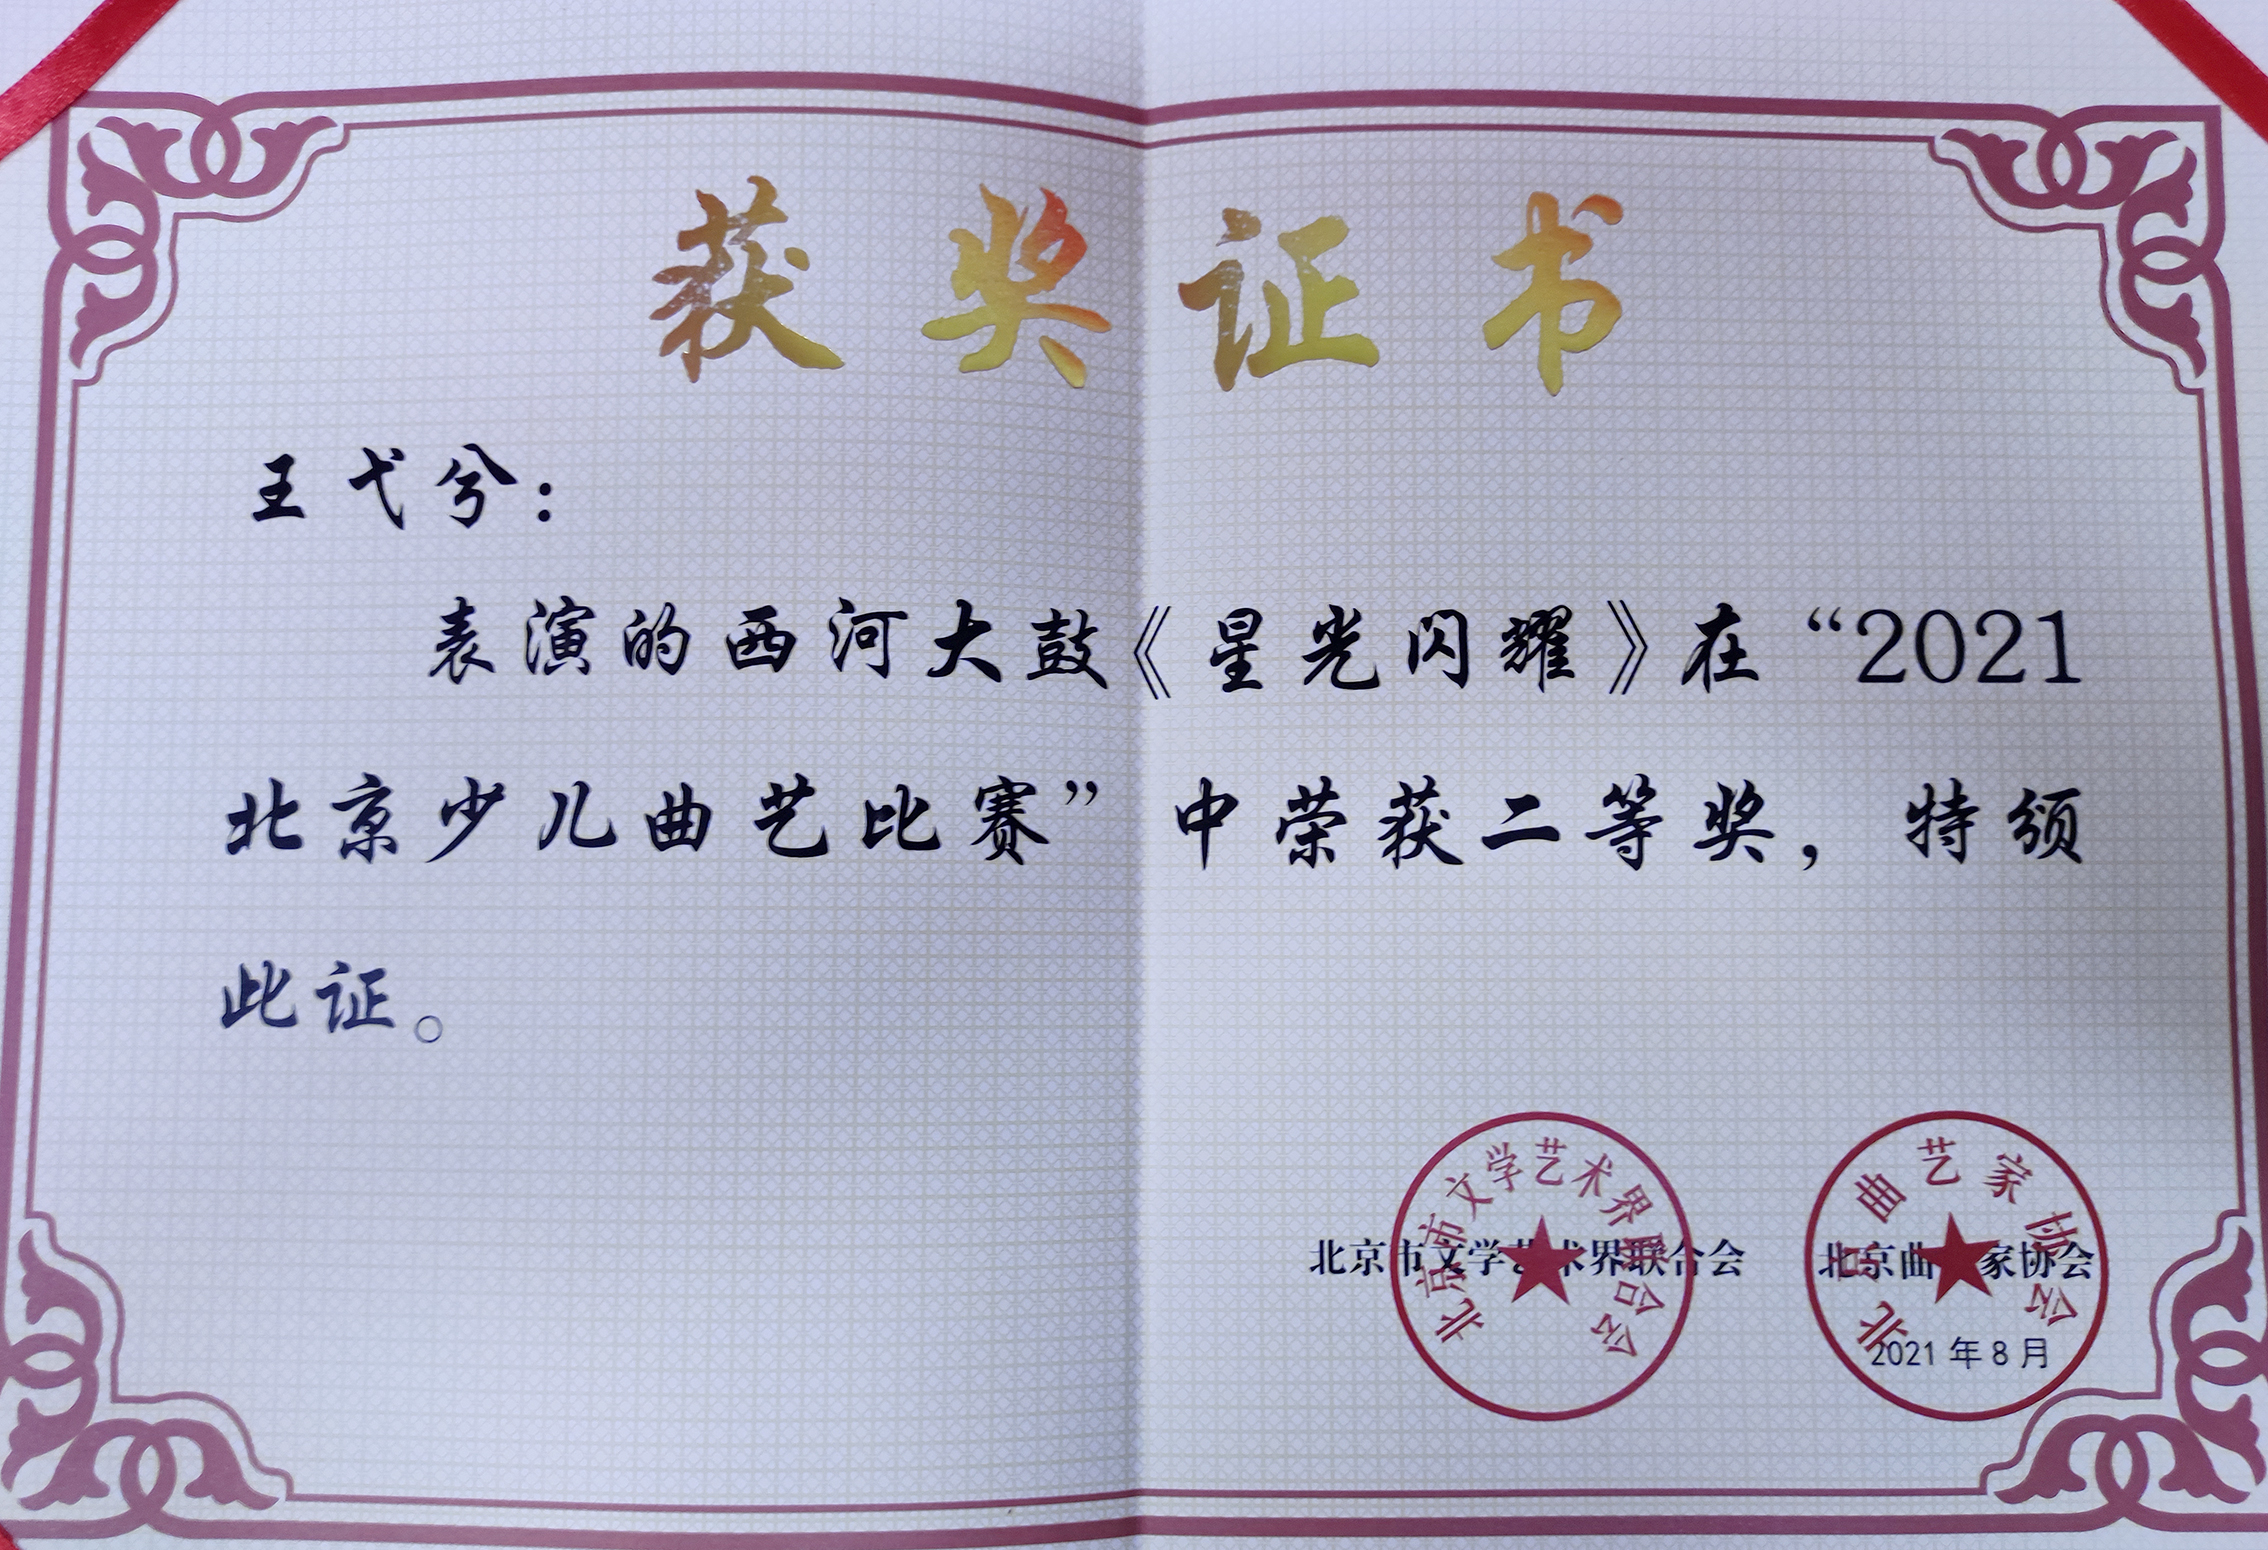 获奖证书
王弋兮：
表演的西河大鼓《星光闪耀》在“2021
北京少儿曲艺比赛”中荣获二等奖，特颁
此证。
北京市文学艺术界联合会 北京曲艺家协会
2021年8月
北京市文学艺术界联合会
北京曲艺家协会